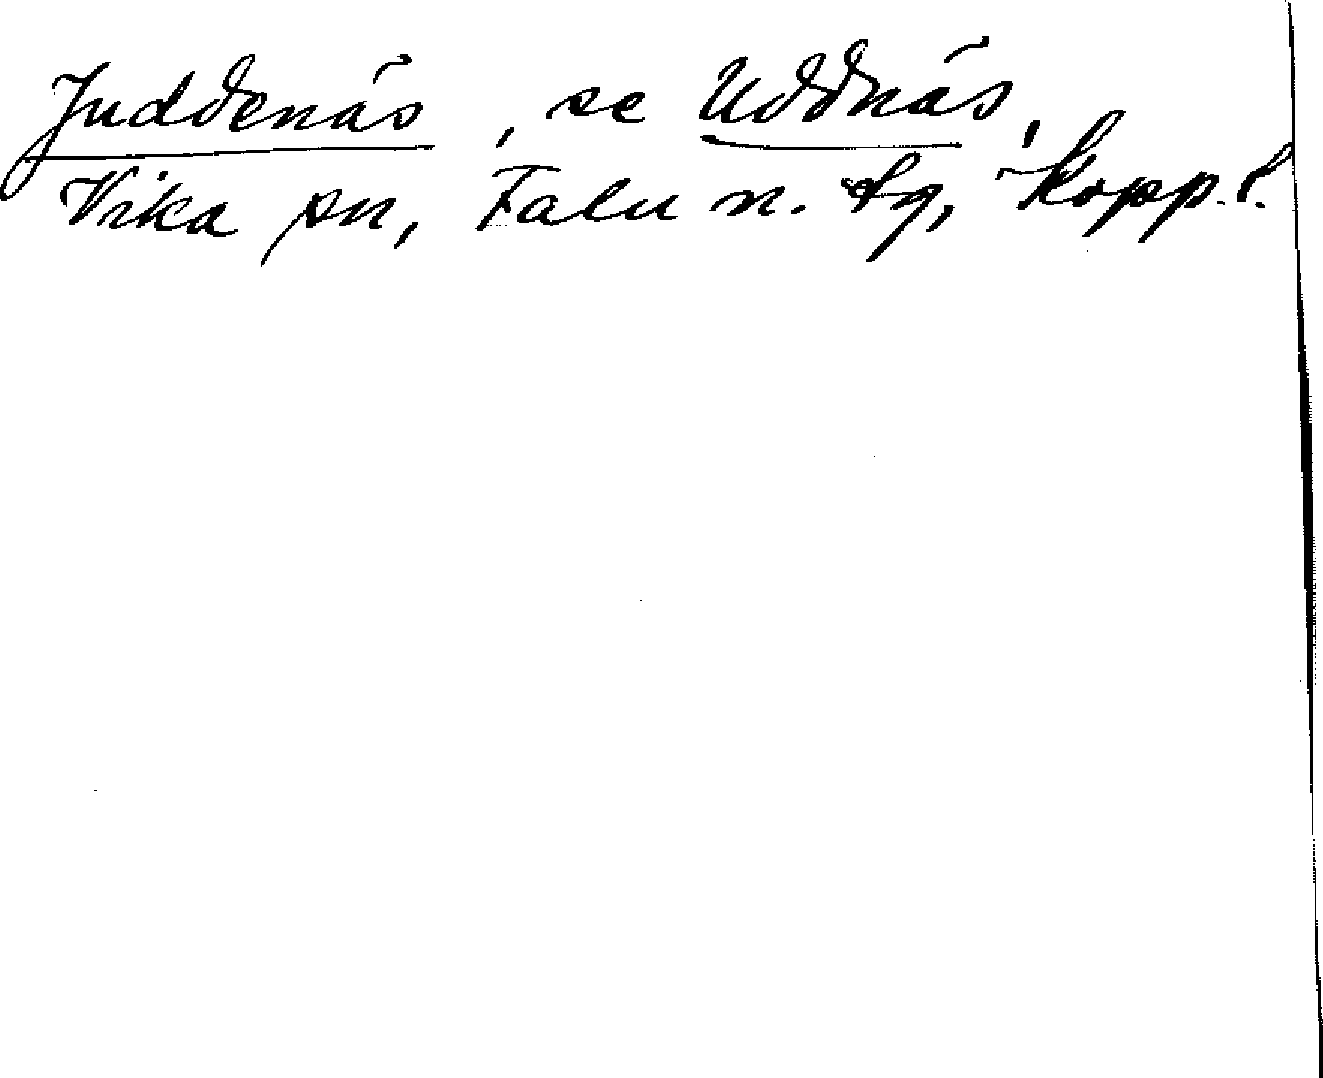 Juddenäs, se Uddnäs,
Vika sn, Falu n. tg, Kopp. l.